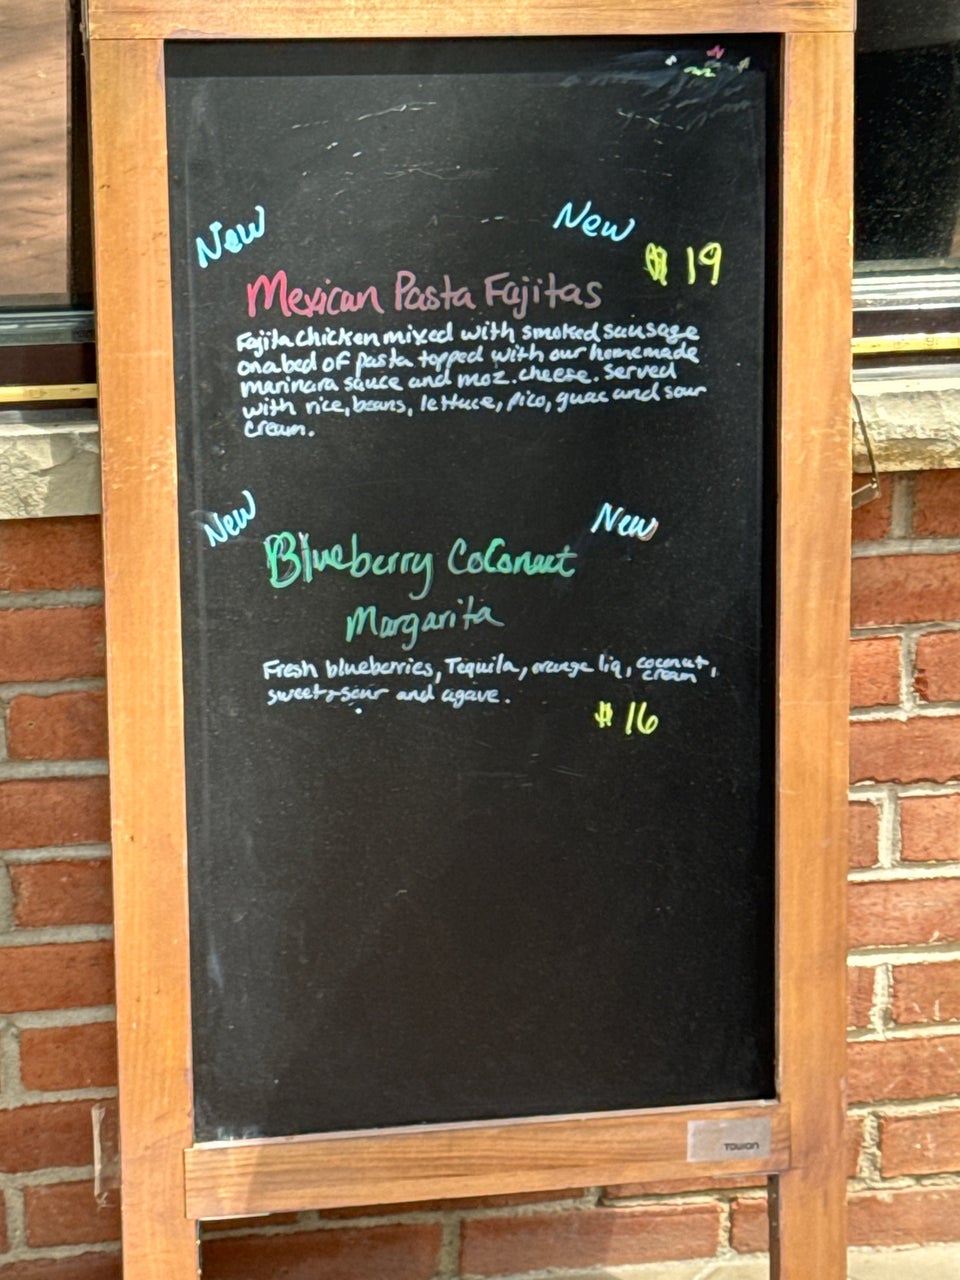 New New
$ 19
Mexican Pasta Fajitas
Fajita Chicken mixed with smoked sausage
on a bed of pasta topped with our homemade
marinara sauce and moz. cheese. served
with rice, beans, lettuce, pico, guac and sour
cream.
New New
Blueberry Coconut
Margarita
Fresh blueberries, Tequila, orange liq, coconut,
cream
sweet+sour and agave.
$ 16
TOWON